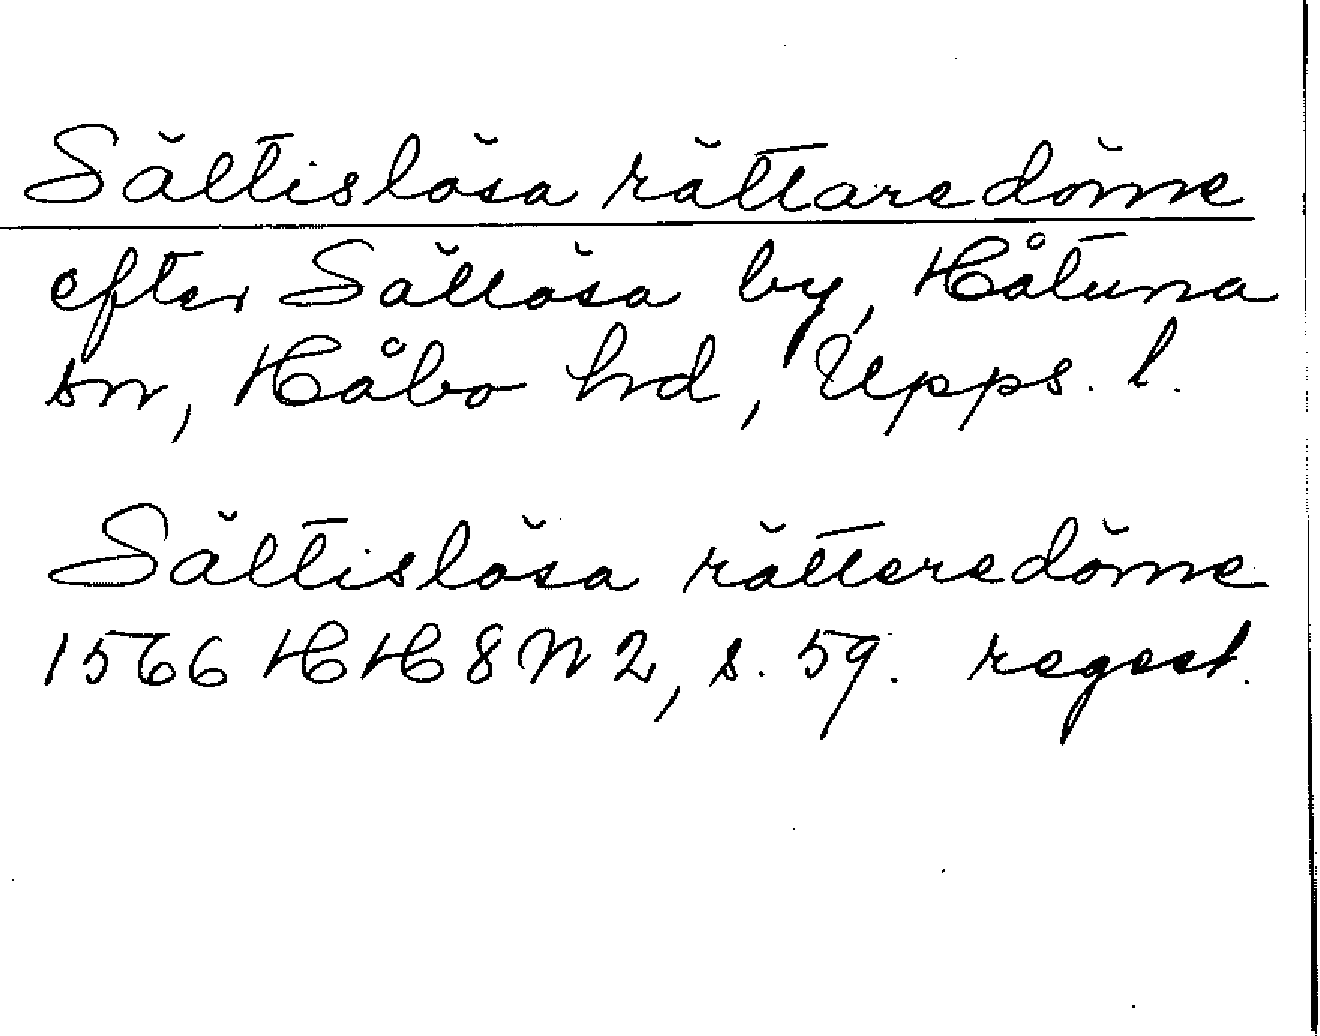 Sältislösa rättaredöme
efter Sällösa by, Håtuna
sn, Håbo hd, Upps. l.
Sältislösa rätteredöme
1566 HH 8 N 2, s. 59. regest.